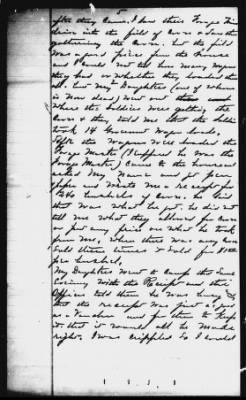 5
after they came. I saw their Forage Train
drive into the field of Corn & saw them
gathering the Corn. but the field
was a good piece from the House
and I could not tell how many wagons
they had or whether they loaded them
all. but my Daughters (one of whom
is now dead) went out
where the soldiers were getting the
Corn & they told me that the soldiers
took 14 Government Wagon loads.
After the Wagons were loaded the
Forage Master (I suppose he was the
Forage Master) came to the house and
asked my Name and got pen
paper and wrote me a receipt for
bushels of Corn. he said
that was what he got. he did not
tell me what they allowed for Corn
or put any price on what he took
from me, when there was any Corn
sold there times it sold for
per bushel.
My Daughters went to Camp the same
evening with the Receipt and the
Officer told them he was sorry &
but the receipt was just as good
as a Voucher and for them to keep
it that it would all be made
right. I was crippled so I could